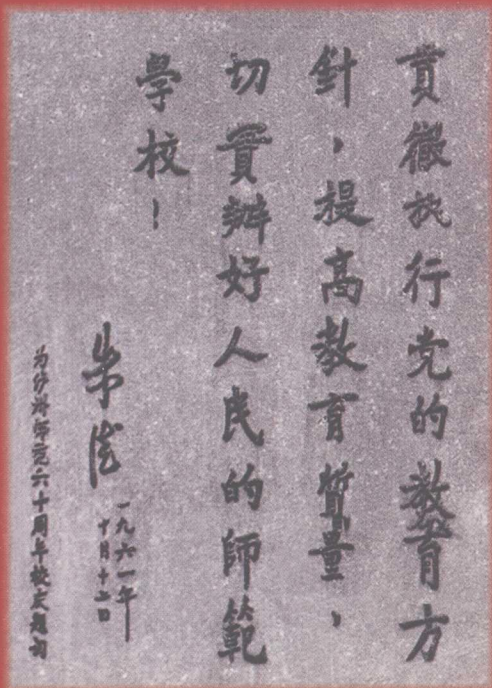 貫徹施行党的教育方
針，提高教育質量，
切實辦好人民的師範
學校！
朱德
一九六一年
十月十二日
为沙洋師范六十周年校庆題詞